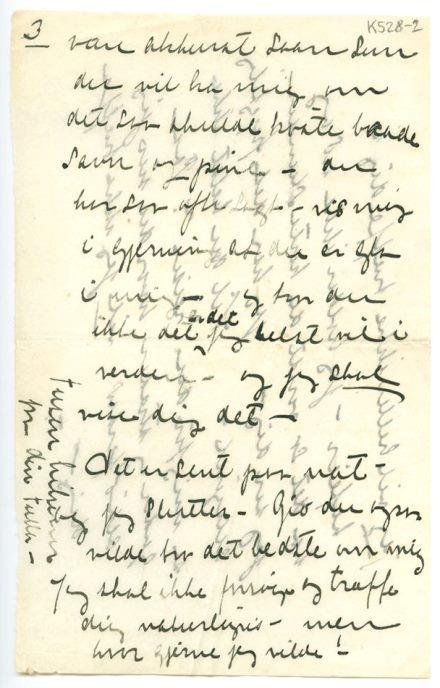 3
K528-2
være akkurat saan som
du vil ha mig, om
det saa skulde koste baade
savn og pine - du
har saa ofte sagt - vis mig
i gjerning at du er
i mig - og tror du
ikke det er det jeg helst vil i
verden - og jeg skal
vise dig det -
Det er sent paa nat -
og jeg slutter - Gid du ogsaa
vilde tro det bedste om mig
Jeg skal ikke prøve og træffe
dig naturligvis - men
hvor gjerne jeg vilde!
paa din